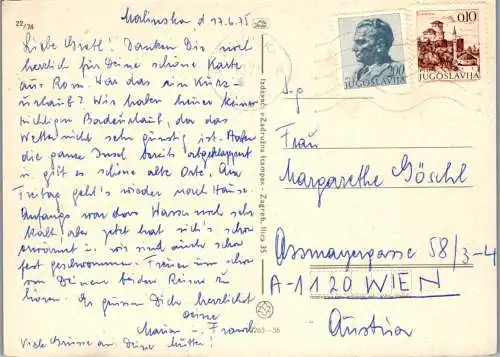 22/74
Malinska d 17.6.75
Liebe Gretl! Danken Dir noch
herzlich für Deine schöne Karte
aus Rom. War das ein Kurz-
urlaub? Wir haben heuer keinen
richtigen Badeurlaub, da das
Wetter nicht sehr günstig ist. Haben
die ganze Insel bereits abgeklappert
u. gibt es schöne alte Orte. Am
Freitag geht's wieder nach Hause.
Anfangs war das Wasser noch sehr
kalt aber jetzt hat sich's schon
erwärmt u. wir sind auch schon
fest geschwommen. Freuen uns schon
von Deinen beiden Reisen zu
hören. Es grüssen Dich herzlichst
Deine
Maria u. Franz
Viele Grüsse an Deine Mutter!
Izdavač »Zadružna štampa« - Zagreb, Ilica 35
263-36
2,00
JUGOSLAVIJA
0,10
JUGOSLAVIJA
Frau
Margarethe Göschl
Assmayergasse 58/3-4
A-1120 WIEN
Austria